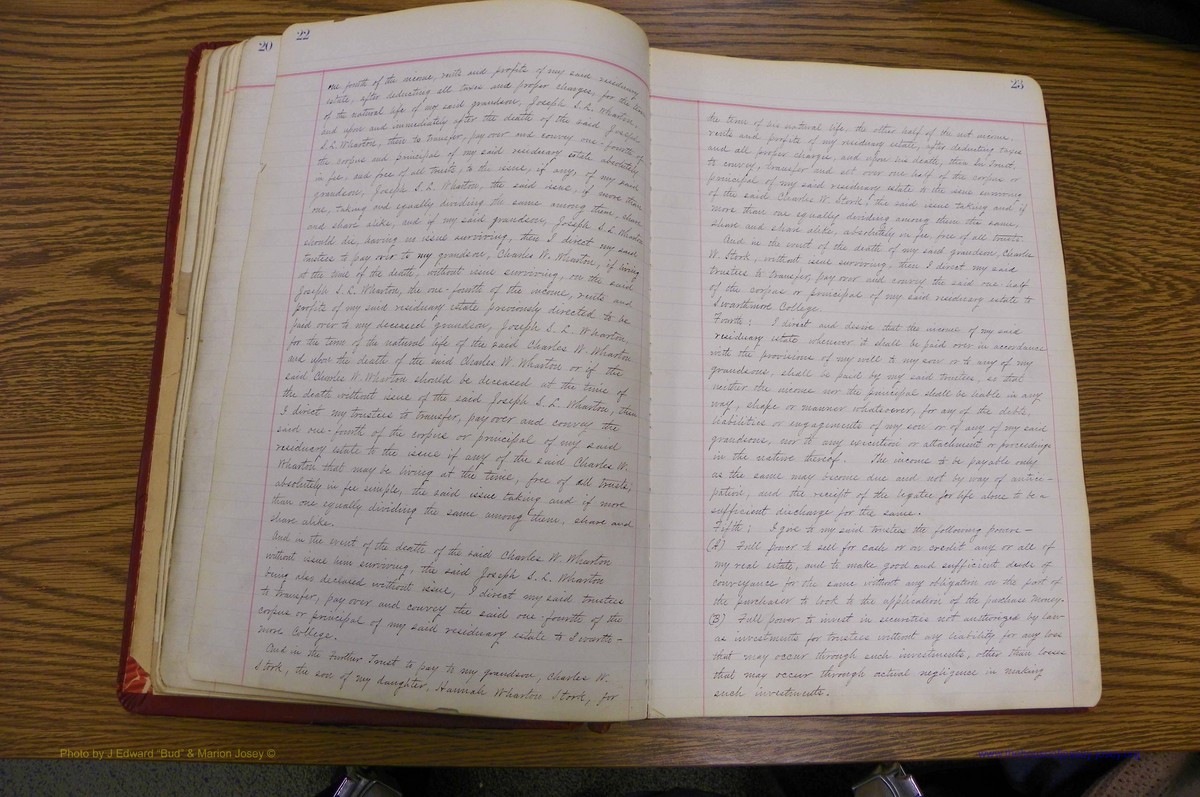 20
22
one fourth of the income, rents and profits of my said residuary
estate, after deducting all taxes and proper charges, for the term
of the natural life of my said grandson, Joseph S. L. Wharton
and upon and immediately after the death of the said Joseph
S. L. Wharton, then to transfer, pay over and convey one-fourth of
the corpus and principal of my said residuary estate absolutely
in fee, and free of all trusts, to the issue, if any, of my said
grandson, Joseph S. L. Wharton, the said issue, if more than
one, taking and equally dividing the same among them, share
and share alike, and if my said grandson, Joseph S. L. Wharton
should die, having no issue surviving, then I direct my said
trustees to pay over to my grandson, Charles W. Wharton, if living
at the time of the death, without issue surviving, of the said
Joseph S. L. Wharton, the one-fourth of the income, rents and
profits of my said residuary estate previously directed to be
paid over to my deceased grandson, Joseph S. L. Wharton,
for the term of the natural life of the said Charles W. Wharton
and upon the death of the said Charles W. Wharton or if the
said Charles W. Wharton should be deceased at the time of
the death without issue of the said Joseph S. L. Wharton, then
I direct my trustees to transfer, pay over and convey the
said one-fourth of the corpus or principal of my said
residuary estate to the issue if any of the said Charles W.
Wharton that may be living at the time, free of all trusts,
absolutely in fee simple, the said issue taking and if more
than one equally dividing the same among them, share and
share alike.
And in the event of the death of the said Charles W. Wharton
without issue him surviving, the said Joseph S. L. Wharton
being also deceased without issue, I direct my said trustees
to transfer, pay over and convey the said one-fourth of the
corpus or principal of my said residuary estate to Swarth-
more College.
And in the Further Trust to pay to my grandson, Charles W.
Stork, the son of my daughter, Hannah Wharton Stork, for
23
the term of his natural life, the other half of the net income,
rents and profits of my residuary estate, after deducting taxes
and all proper charges, and upon his death, then In Trust,
to convey, transfer and set over one half of the corpus or
principal of my said residuary estate to the issue surviving
of the said Charles W. Stork, the said issue taking and if
more than one equally dividing among them the same,
share and share alike, absolutely in fee, free of all trusts.
And in the event of the death of my said grandson, Charles
W. Stork, without issue surviving, then I direct my said
trustees to transfer, pay over and convey the said one-half
of the corpus or principal of my said residuary estate to
Swarthmore College.
Fourth: I direct and desire that the income of my said
residuary estate whenever it shall be paid over in accordance
with the provisions of my will to my son or to any of my
grandsons, shall be paid by my said trustees, so that
neither the income nor the principal shall be liable in any
way, shape or manner whatever, for any of the debts,
liabilities or engagements of my son or of any of my said
grandsons, nor to any execution or attachment or proceedings
in the nature thereof. The income to be payable only
as the same may become due and not by way of antici-
pation, and the receipt of the legatee for life alone to be a
sufficient discharge for the same.
Fifth: I give to my said trustees the following powers -
(A) Full power to sell for cash or on credit any or all of
my real estate, and to make good and sufficient deeds of
conveyance for the same without any obligation on the part of
the purchaser to look to the application of the purchase money.
(B) Full power to invest in securities not authorized by law
as investments for trustees without any liability for any loss
that may occur through such investments, other than losses
that may occur through actual negligence in making
such investments.
Photo by J Edward "Bud" & Marion Josey ©